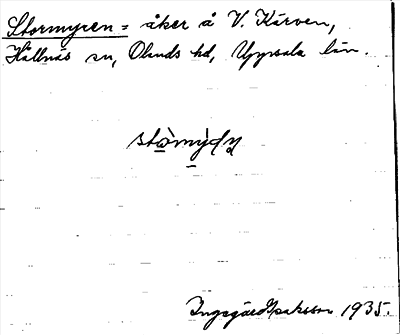 Stormyren = åker å V. Kärven,
Hållnäs sn, Olands hd, Uppsala län.
Ingegärd Isaksson 1935.